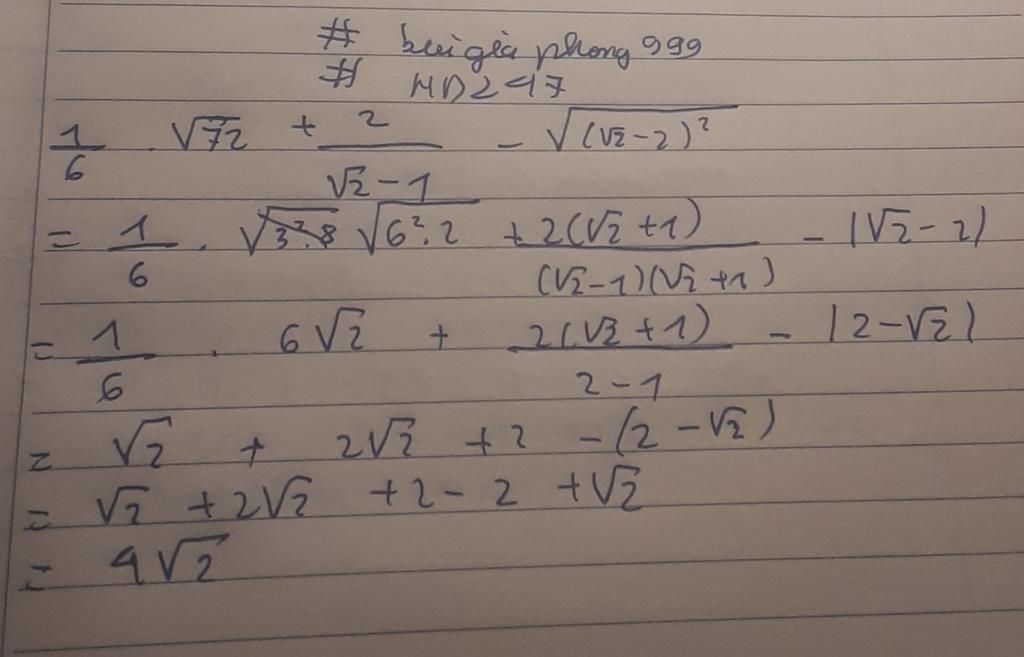 # buigiaphong999
# HD247
1/6 . √72 + 2/(√2 - 1) - √((√2 - 2)²)
= 1/6 . √(3².8) √(6².2) + 2(√2 + 1)/((√2 - 1)(√2 + 1)) - |√2 - 2|
= 1/6 . 6√2 + 2(√2 + 1)/(2 - 1) - |2 - √2|
= √2 + 2√2 + 2 - (2 - √2)
= √2 + 2√2 + 2 - 2 + √2
= 4√2